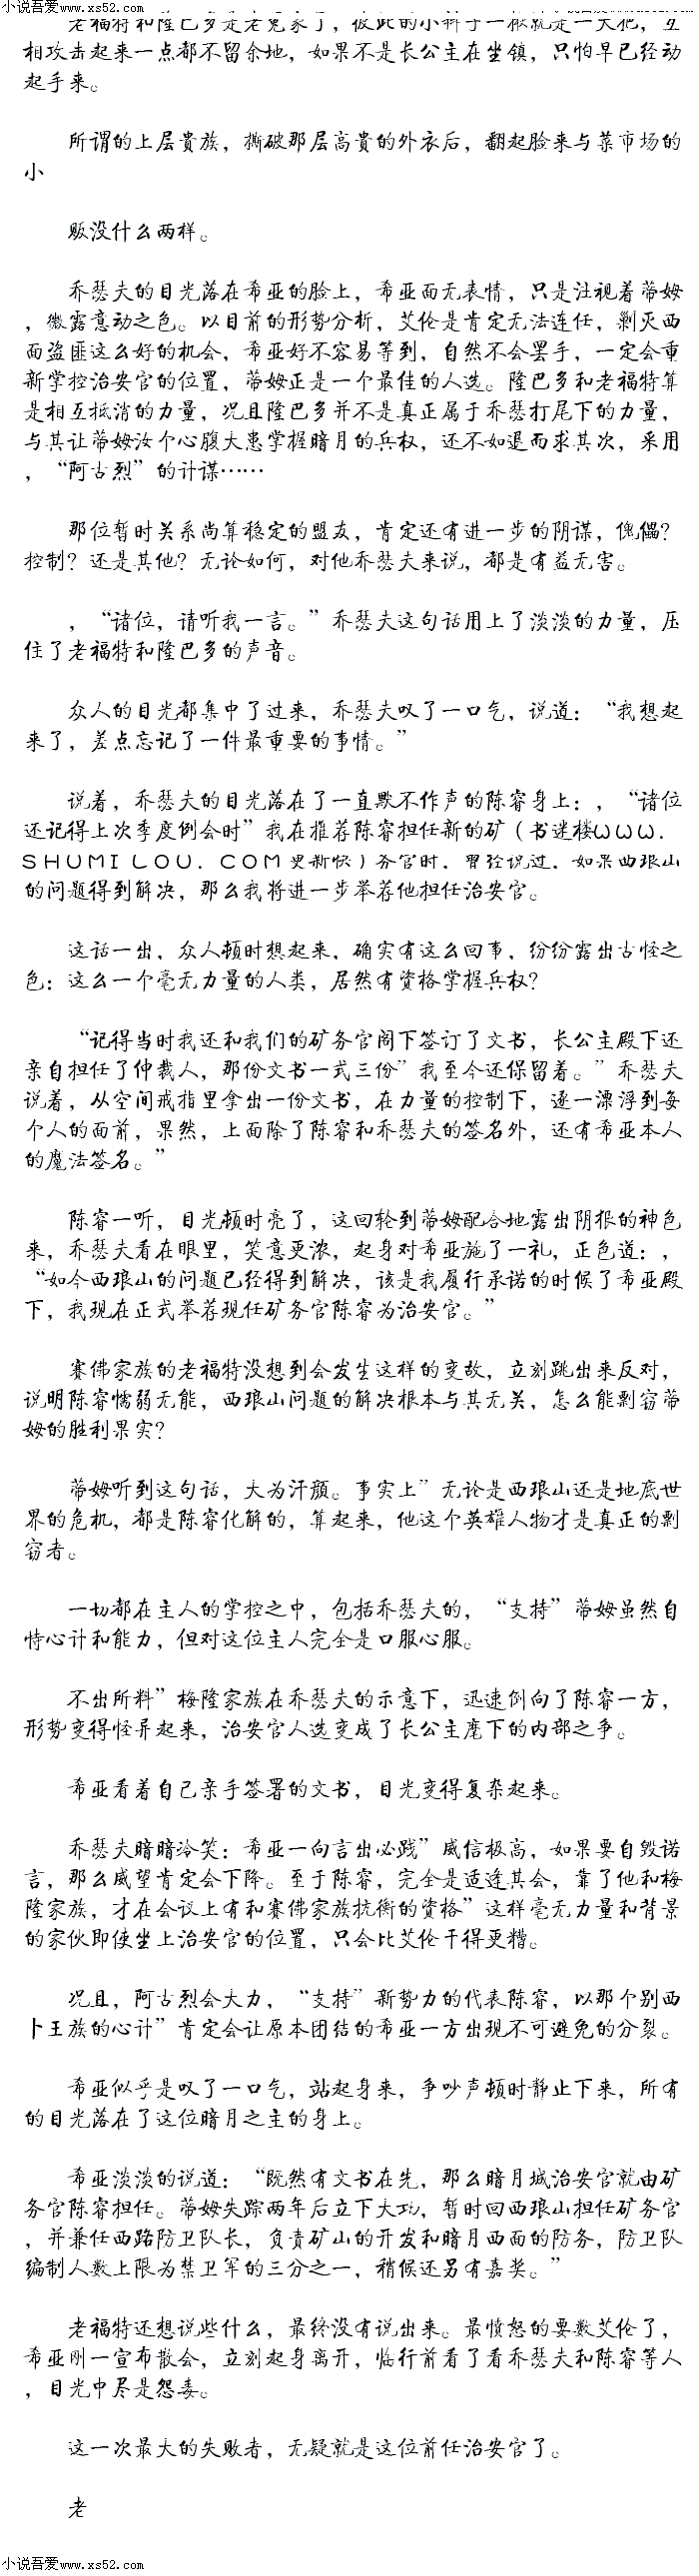 小说吾爱www.xs52.com
老福特和隆巴多是老冤家了，彼此的小辫子一揪就是一大把，互
相攻击起来一点都不留余地，如果不是长公主在坐镇，只怕早已经动
起手来。
所谓的上层贵族，撕破那层高贵的外衣后，翻起脸来与菜市场的
小
贩没什么两样。
乔瑟夫的目光落在希亚的脸上，希亚面无表情，只是注视着蒂姆
，微露意动之色。以目前的形势分析，艾伦是肯定无法连任，剿灭西
面盗匪这么好的机会，希亚好不容易等到，自然不会罢手，一定会重
新掌控治安官的位置，蒂姆正是一个最佳的人选。隆巴多和老福特算
是相互抵消的力量，况且隆巴多并不是真正属于乔瑟打尾下的力量，
与其让蒂姆汝个心腹大患掌握暗月的兵权，还不如退而求其次，采用
，“阿古烈”的计谋……
那位暂时关系尚算稳定的盟友，肯定还有进一步的阴谋，傀儡？
控制？还是其他？无论如何，对他乔瑟夫来说，都是有益无害。
，“诸位，请听我一言。”乔瑟夫这句话用上了淡淡的力量，压
住了老福特和隆巴多的声音。
众人的目光都集中了过来，乔瑟夫叹了一口气，说道：“我想起
来了，差点忘记了一件最重要的事情。”
说着，乔瑟夫的目光落在了一直默不作声的陈睿身上：，“诸位
还记得上次季度例会时”我在推荐陈睿担任新的矿（书迷楼ＷＷＷ．
ＳＨＵＭＩＬＯＵ．ＣＯＭ更新快）务官时，曾经说过，如果西琅山
的问题得到解决，那么我将进一步举荐他担任治安官。
这话一出，众人顿时想起来，确实有这么回事，纷纷露出古怪之
色：这么一个毫无力量的人类，居然有资格掌握兵权？
“记得当时我还和我们的矿务官阁下签订了文书，长公主殿下还
亲自担任了仲裁人，那份文书一式三份”我至今还保留着。”乔瑟夫
说着，从空间戒指里拿出一份文书，在力量的控制下，逐一漂浮到每
个人的面前，果然，上面除了陈睿和乔瑟夫的签名外，还有希亚本人
的魔法签名。”
陈睿一听，目光顿时亮了，这回轮到蒂姆配合地露出阴狠的神色
来，乔瑟夫看在眼里，笑意更浓，起身对希亚施了一礼，正色道：，
“如今西琅山的问题已经得到解决，该是我履行承诺的时候了希亚殿
下，我现在正式举荐现任矿务官陈睿为治安官。”
赛佛家族的老福特没想到会发生这样的变故，立刻跳出来反对，
说明陈睿懦弱无能，西琅山问题的解决根本与其无关，怎么能剽窃蒂
姆的胜利果实？
蒂姆听到这句话，大为汗颜。事实上”无论是西琅山还是地底世
界的危机，都是陈睿化解的，算起来，他这个英雄人物才是真正的剽
窃者。
一切都在主人的掌控之中，包括乔瑟夫的，“支持”蒂姆虽然自
恃心计和能力，但对这位主人完全是口服心服。
不出所料”梅隆家族在乔瑟夫的示意下，迅速倒向了陈睿一方，
形势变得怪异起来，治安官人选变成了长公主麾下的内部之争。
希亚看着自己亲手签署的文书，目光变得复杂起来。
乔瑟夫暗暗冷笑：希亚一向言出必践”威信极高，如果要自毁诺
言，那么威望肯定会下降。至于陈睿，完全是适逢其会，靠了他和梅
隆家族，才在会议上有和赛佛家族抗衡的资格”这样毫无力量和背景
的家伙即使坐上治安官的位置，只会比艾伦干得更糟。
况且，阿古烈会大力，“支持”新势力的代表陈睿，以那个别西
卜王族的心计”肯定会让原本团结的希亚一方出现不可避免的分裂。
希亚似乎是叹了一口气，站起身来，争吵声顿时静止下来，所有
的目光落在了这位暗月之主的身上。
希亚淡淡的说道：“既然有文书在先，那么暗月城治安官就由矿
务官陈睿担任。蒂姆失踪两年后立下大功，暂时回西琅山担任矿务官
，并兼任西路防卫队长，负责矿山的开发和暗月西面的防务，防卫队
编制人数上限为禁卫军的三分之一，稍候还另有嘉奖。”
老福特还想说些什么，最终没有说出来。最愤怒的要数艾伦了，
希亚刚一宣布散会，立刻起身离开，临行前看了看乔瑟夫和陈睿等人
，目光中尽是怨毒。
这一次最大的失败者，无疑就是这位前任治安官了。
老
小说吾爱www.xs52.com